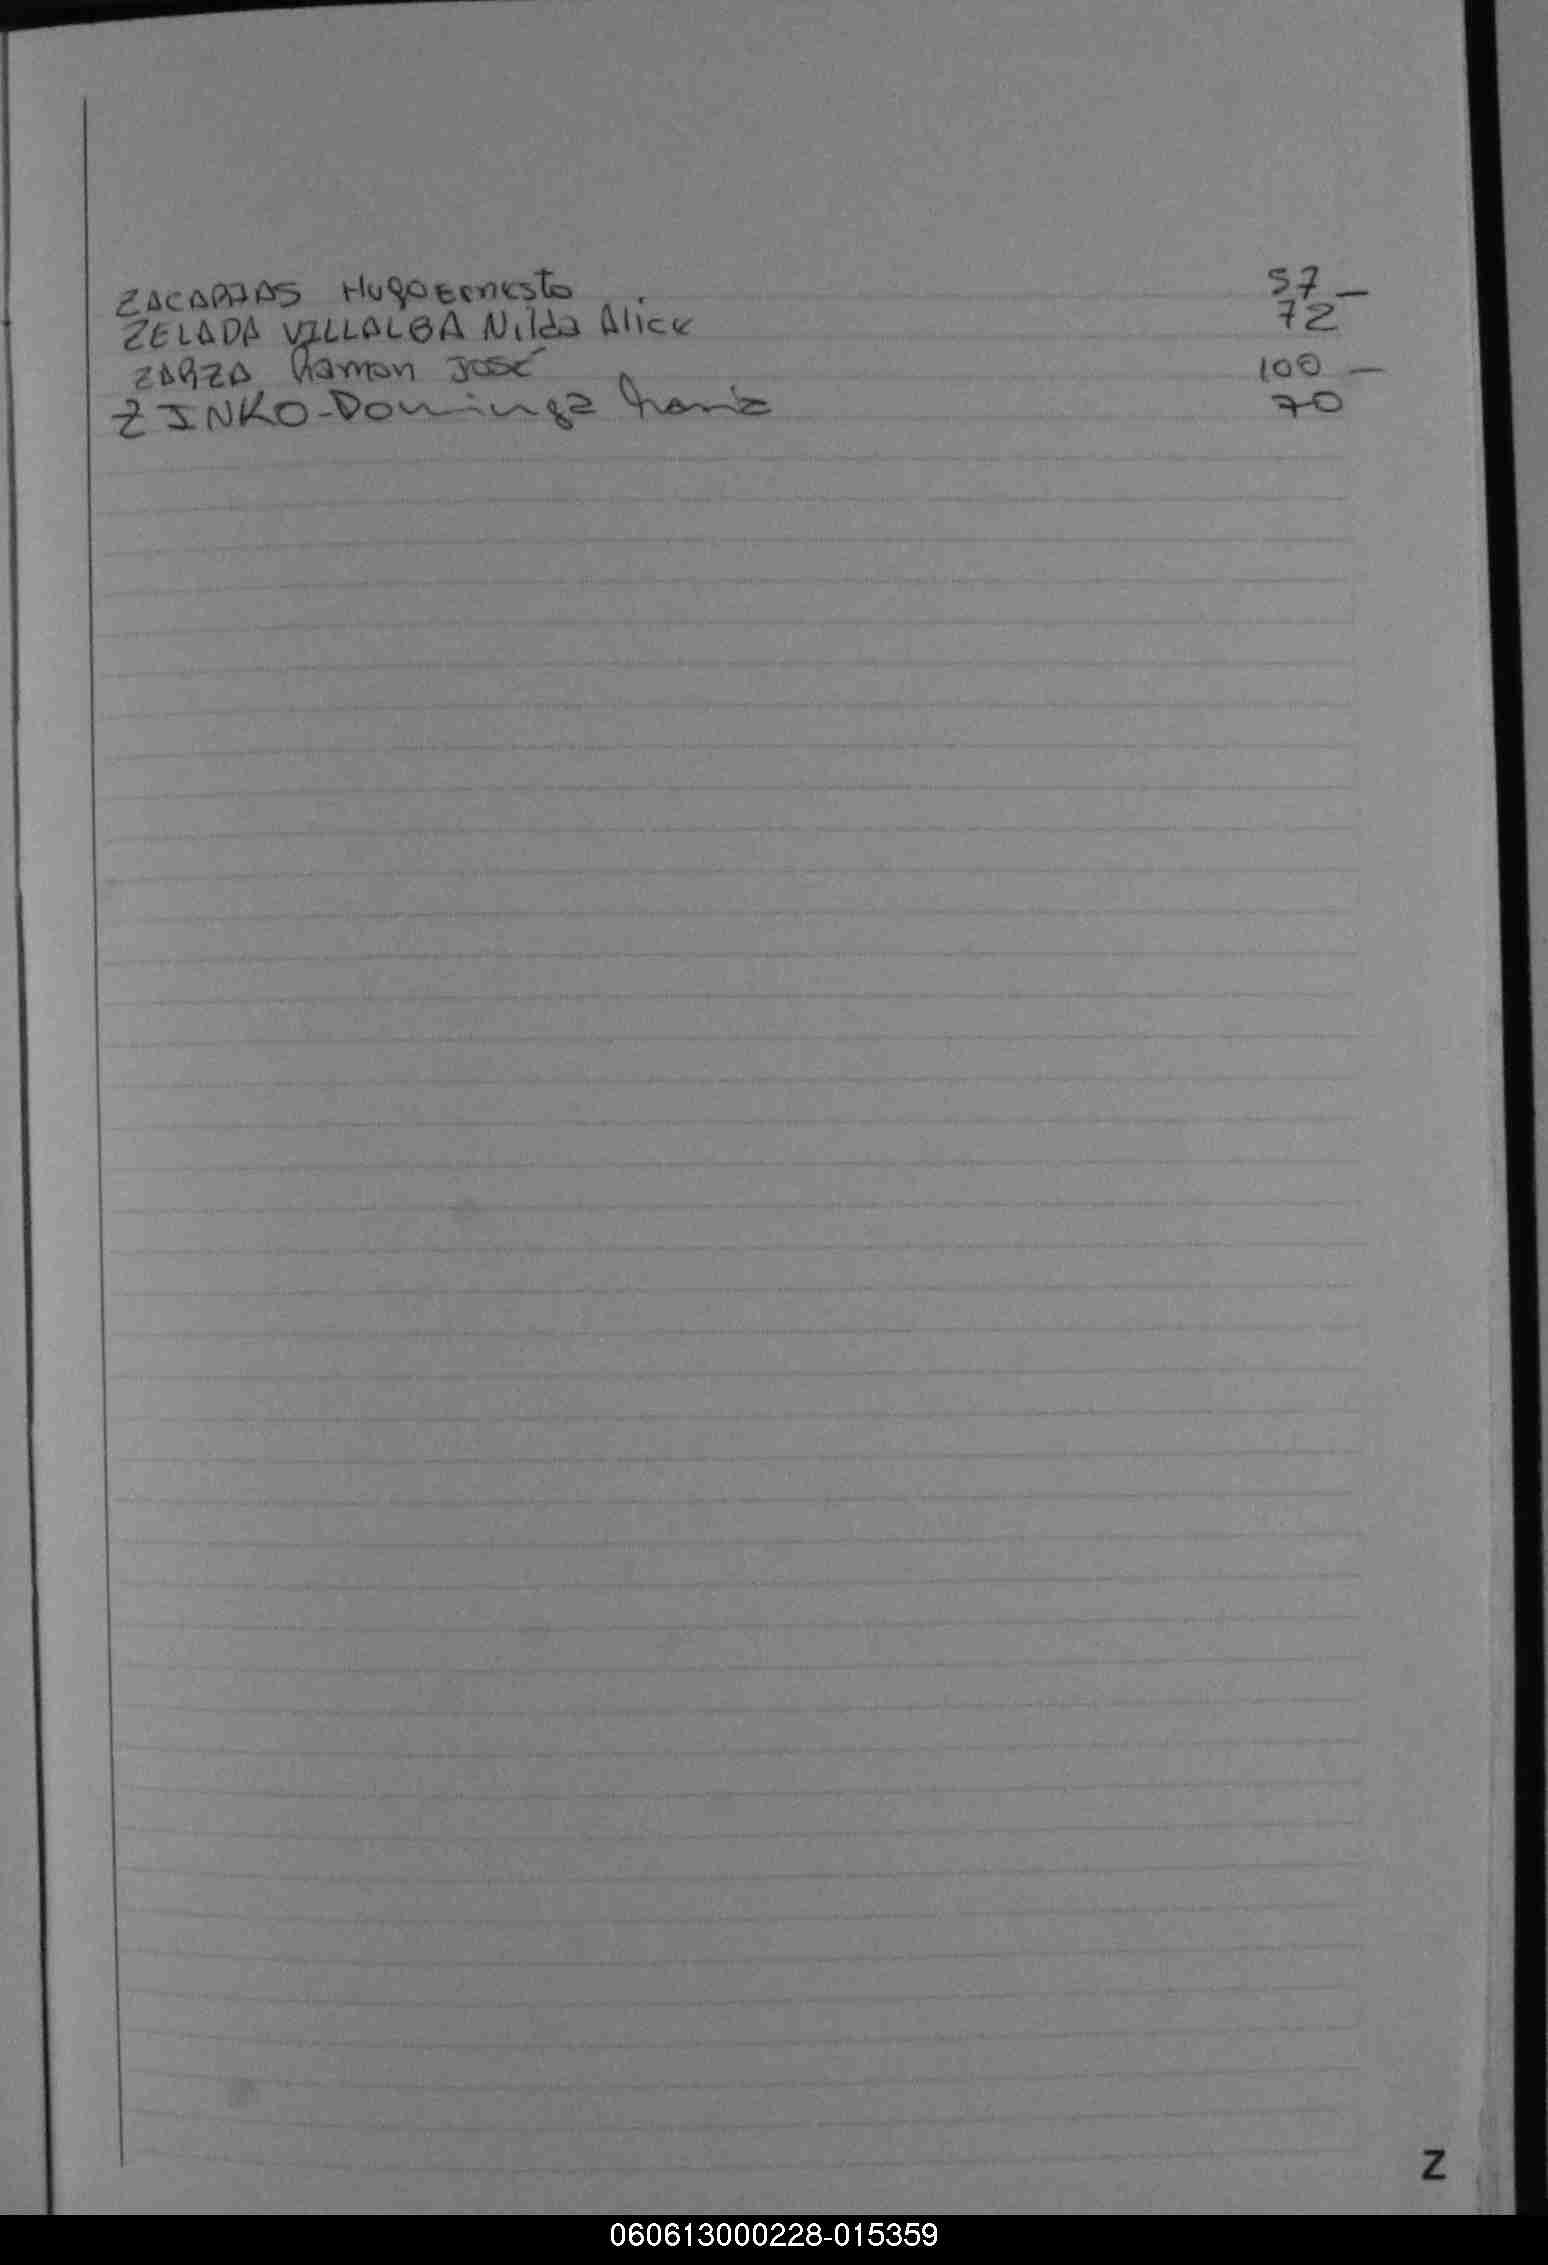 ZACARIAS Hugo Ernesto 57 —
ZELADA VILLALBA Nilda Alice 72
ZARZA Ramon José 100 —
ZINKO - Dominga Maria 70
Z
060613000228-015359